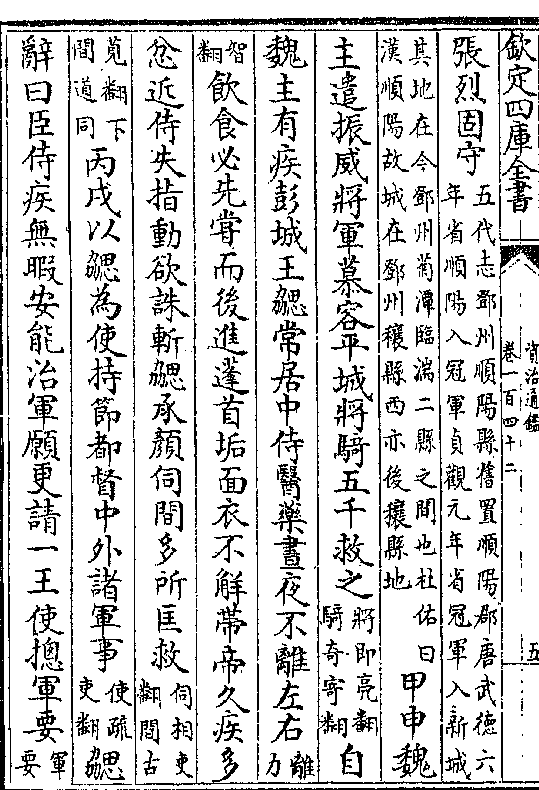 欽定四庫全書
資治通鑑
卷一百四十二
五
張烈固守
五代志鄧州順陽縣舊置順陽郡唐武德六
年省順陽入冠軍貞觀元年省冠軍入新城
其地在今鄧州菊潭臨湍二縣之間也杜佑曰
漢順陽故城在鄧州穰縣西亦後穰縣地
甲申魏
主遣振威將軍慕容平城將騎五千救之
將即亮翻
騎奇寄翻
自
魏主有疾彭城王勰常居中侍醫藥晝夜不離左右
離
力
智
翻
飲食必先嘗而後進蓬首垢面衣不解帶帝久疾多
忿近侍失指動欲誅斬勰承顔伺間多所匡救
伺相吏
翻間古
莧翻下
間道同
丙戌以勰為使持節都督中外諸軍事
使疏
吏翻
勰
辭曰臣侍疾無暇安能治軍願更請一王使摠軍要
軍
要